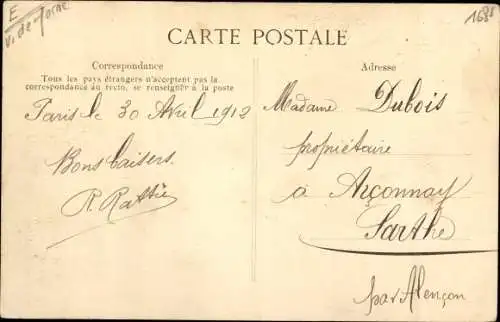 E
V. de Marne
1686
CARTE POSTALE
Correspondance
Tous les pays étrangers n'acceptent pas la
correspondance au recto, se renseigner à la poste
Paris le 30 Avril 1912
Bons baisers.
R. Rattié
Adresse
Madame Dubois
propriétaire
à Arçonnay
Sarthe
par Alençon